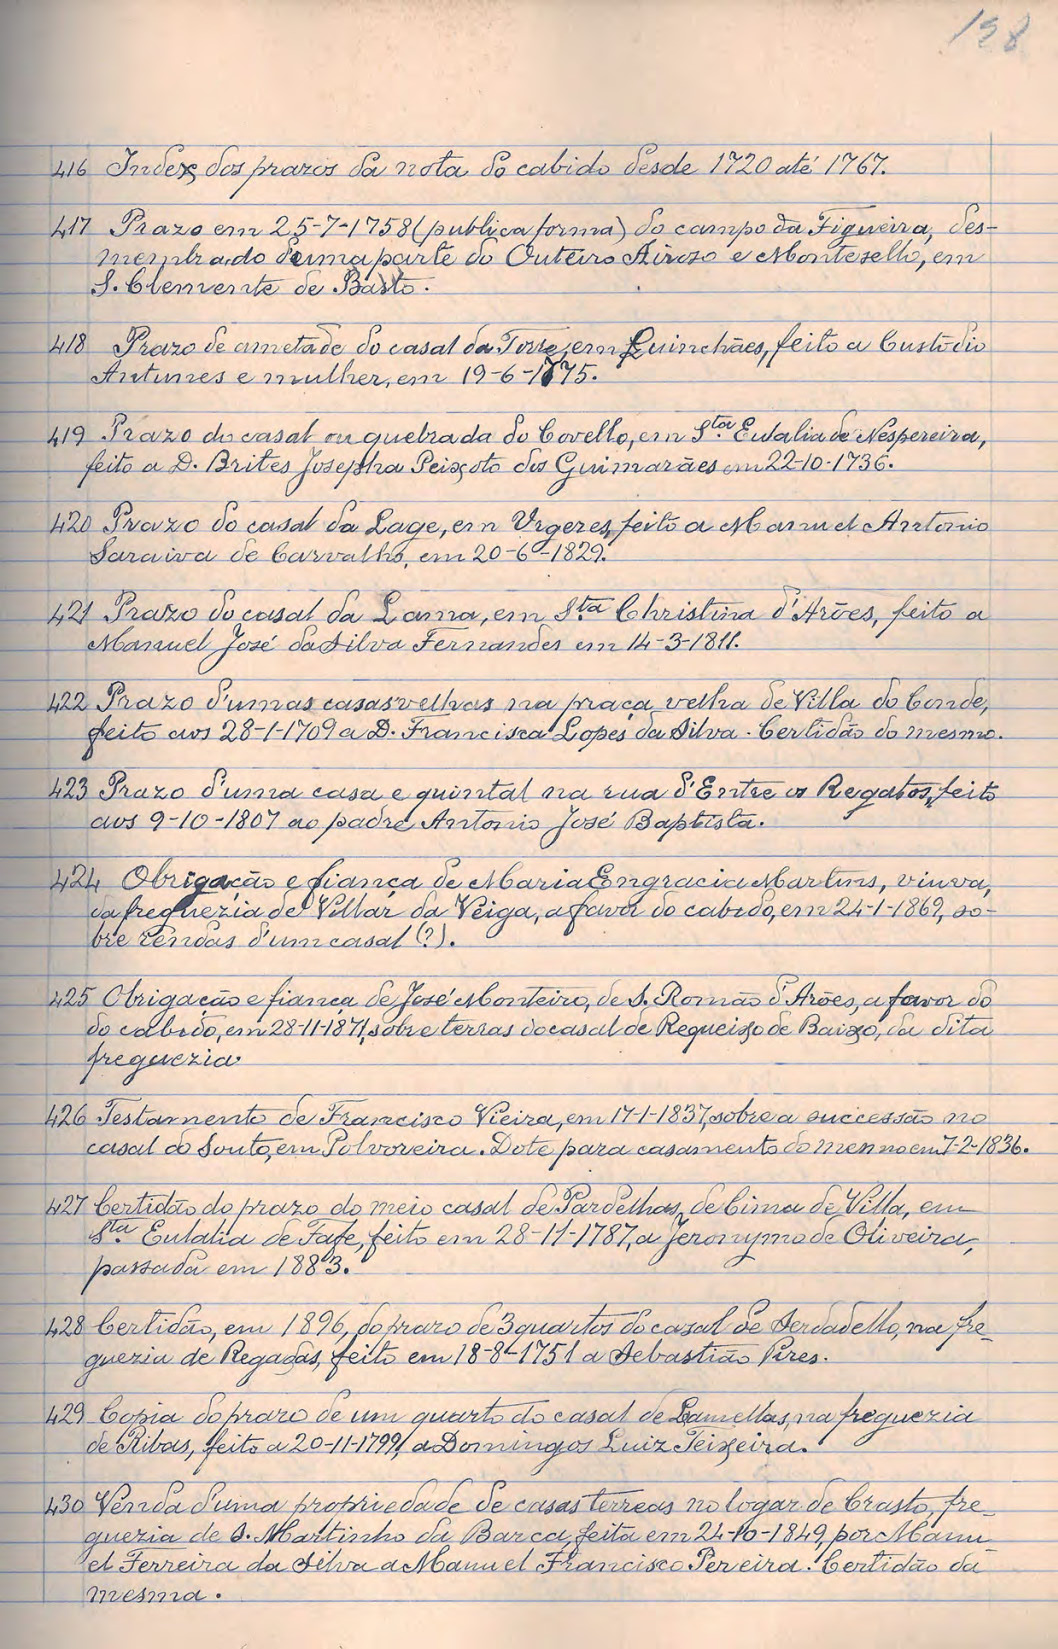 198
416 Index dos prazos da nota do cabido desde 1720 até 1767.
417 Prazo em 25-7-1758 (publica forma) do campo da Figueira, des-
membrado d'uma parte do Outeiro Airoso e Montesello, em
S. Clemente de Basto.
418 Prazo de ametade do casal da Torre, em Quinchães, feito a Custodio
Antunes e mulher, em 19-6-1775.
419 Prazo do casal ou quebrada do Covello, em Sta. Eulalia de Nespereira,
feito a D. Brites Josepha Peixoto dos Guimarães em 22-10-1736.
420 Prazo do casal da Lage, em Urgeres, feito a Manuel Antonio
Saraiva de Carvalho, em 20-6-1829.
421 Prazo do casal da Lama, em Sta. Christina d'Arões, feito a
Manuel José da Silva Fernandes em 14-3-1811.
422 Prazo d'umas casas velhas na praça velha de Villa do Conde,
feito aos 28-1-1709 a D. Francisca Lopes da Silva. Certidão do mesmo.
423 Prazo d'uma casa e quintal na rua d'Entre os Regatos, feito
aos 9-10-1807 ao padre Antonio José Baptista.
424 Obrigação e fiança de Maria Engracia Martins, viuva,
da freguezia de Villar da Veiga, a favor do cabido, em 24-1-1869, so-
bre rendas d'um casal (?).
425 Obrigação e fiança de José Monteiro, de S. Romão d'Arões, a favor do
do cabido, em 28-11-1871, sobre terras do casal de Requeixo de Baixo, da dita
freguezia
426 Testamento de Francisco Vieira, em 17-1-1837, sobre a successão no
casal do Souto, em Polvoreira. Dote para casamento do mesmo em 7-2-1836.
427 Certidão do prazo do meio casal de Pardelhas, de Cima de Villa, em
Sta. Eulalia de Fafe, feito em 28-11-1787, a Jeronymo de Oliveira,
passada em 1883.
428 Certidão, em 1896, do prazo de 3 quartos do casal de Serdadello, na fre-
guezia de Regadas, feito em 18-8-1751 a Sebastião Pires.
429 Copia do prazo de um quarto do casal de Lamellas, na freguezia
de Ribas, feito a 20-11-1799, a Domingos Luiz Teixeira.
430 Venda d'uma propriedade de casas terreas no logar de Crasto, fre-
guezia de S. Martinho da Barca, feita em 24-10-1849, por Manu-
el Ferreira da Silva a Manuel Francisco Pereira. Certidão da
mesma.